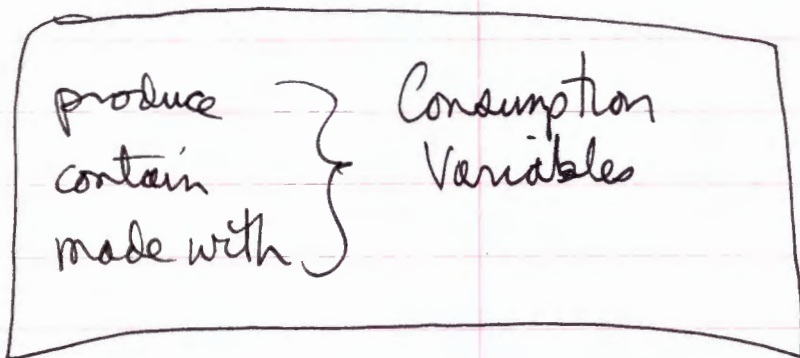 produce
contain
made with
Consumption
Variables